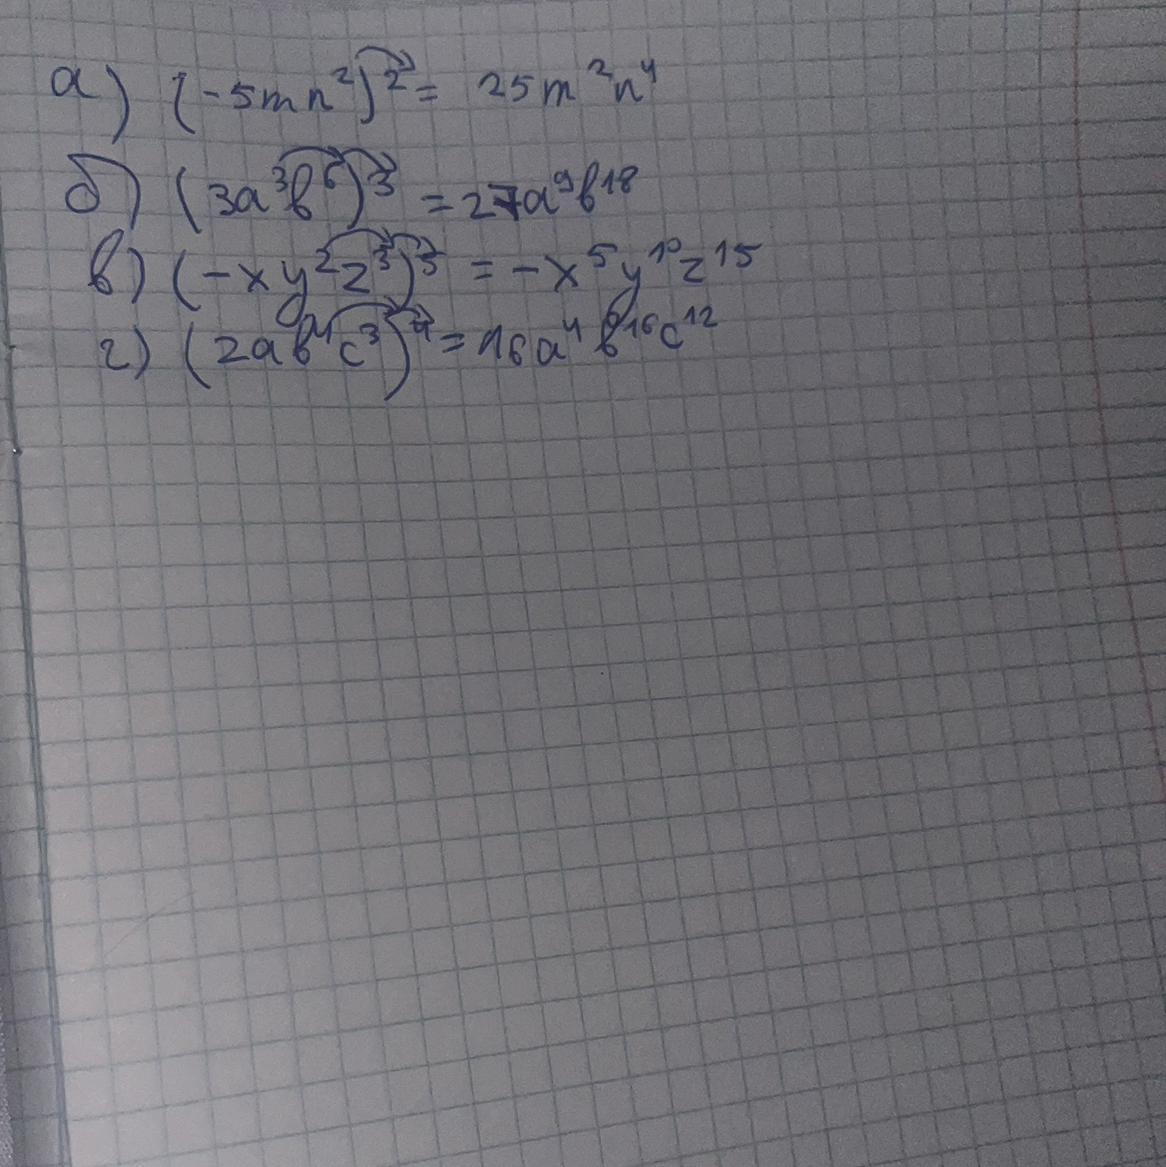 а) (-5mn²)² = 25m²n⁴
б) (3a³b⁶)³ = 27a⁹b¹⁸
в) (-xy²z³)⁵ = -x⁵y¹⁰z¹⁵
г) (2ab⁴c³)⁴ = 16a⁴b¹⁶c¹²